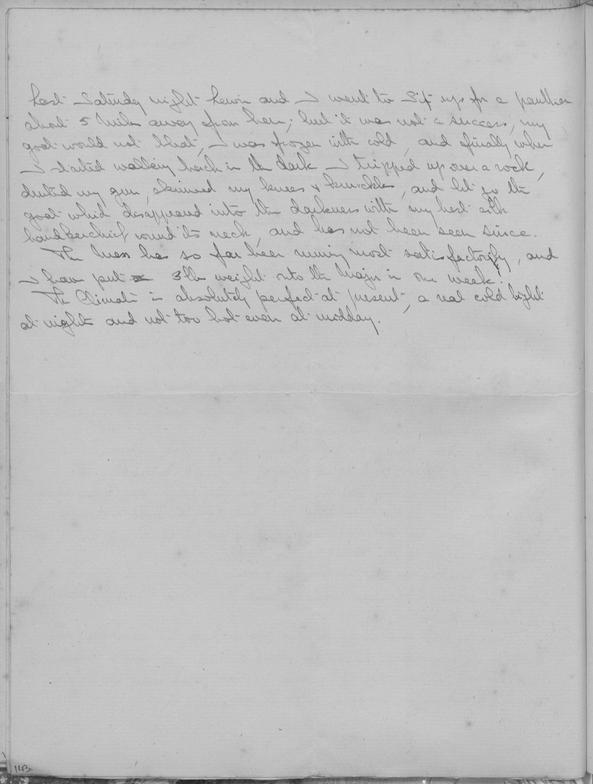 Last Saturday night Lewin and I went to sit up for a panther
about 5 miles away from here; but it was not a success, my
goat would not bleat, I was frozen with cold, and finally when
I started walking back in the dark I tripped up over a rock,
dented my gun, skinned my knees & knuckles, and let go the
goat which disappeared into the darkness with my best silk
handkerchief round its neck, and has not been seen since.
The mess has so far been running most satisfactorily, and
I have put 3 lbs weight onto the Major in one week.
The Climate is absolutely perfect at present, a real cold
at nights and not too hot even at midday.
113